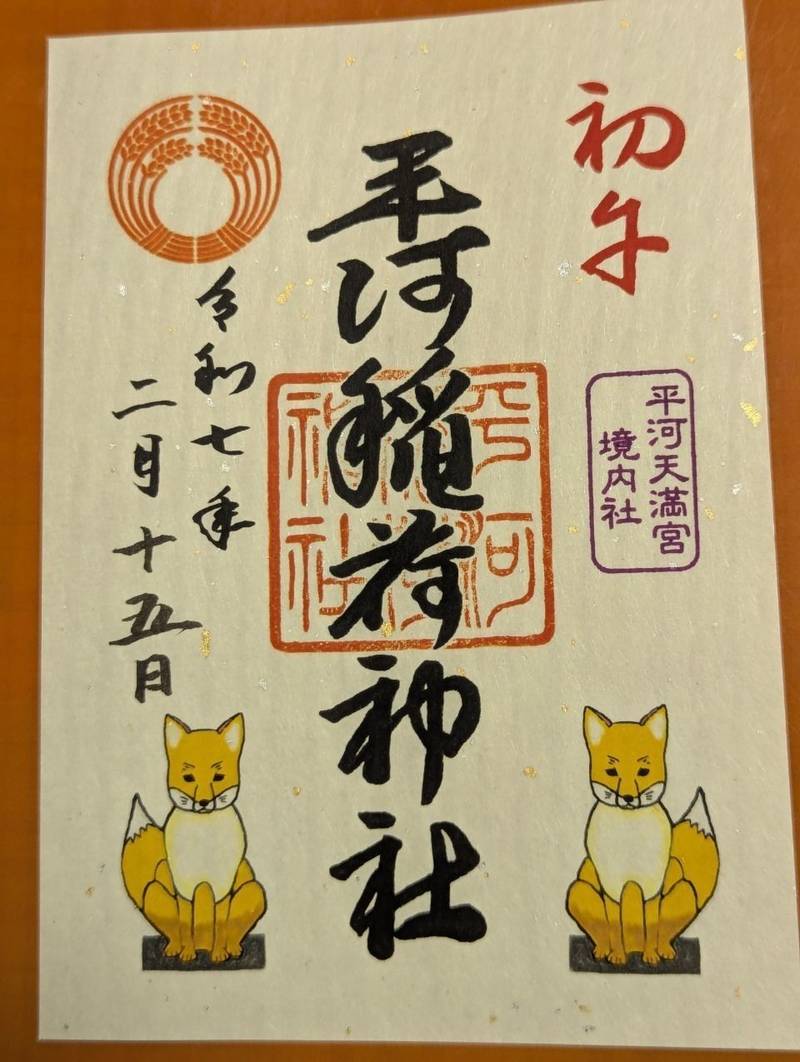 初午
平河天満宮
境内社
平河稲荷神社
平河
稲荷
神社
令和七年
二月十五日